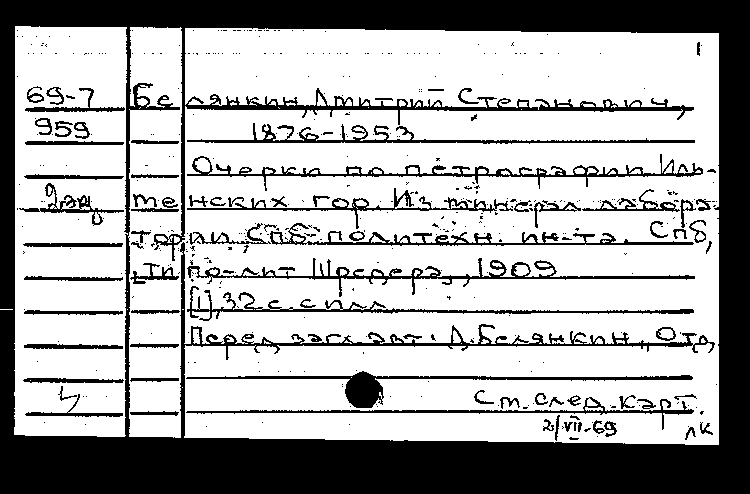 1
69-7 Белянкин, Дмитрий Степанович,
959 1876-1953
Очерки по петрографии Иль-
менских гор. Из минерал. лабора-
тории СПб политехн. ин-та. СПб,
типо-лит Шредера, 1909
[1], 32 с. с илл.
Перед загл. авт.: Д. Белянкин. Отд.
См. след. карт.
2/VII-69 лк